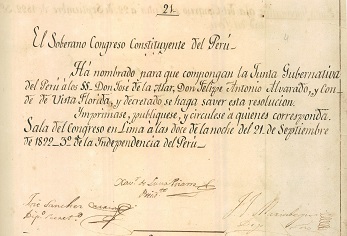 21
El Soberano Congreso Constituyente del Perú
Ha nombrado para que compongan la Junta Gubernativa
del Perú a los SS. Don José de la Mar, Don Felipe Antonio Alvarado, y Con-
de de Vista Florida, y decretado se haga saver esta resolucion.
Imprimase, publíquese, y circulese a quienes corresponda.
Sala del Congreso en Lima a las doce de la noche del 21 de Septiembre
de 1822 - 3º de la Independencia del Perú -
Xavr. de Luna Pizarro
Presid.te
José Sanchez